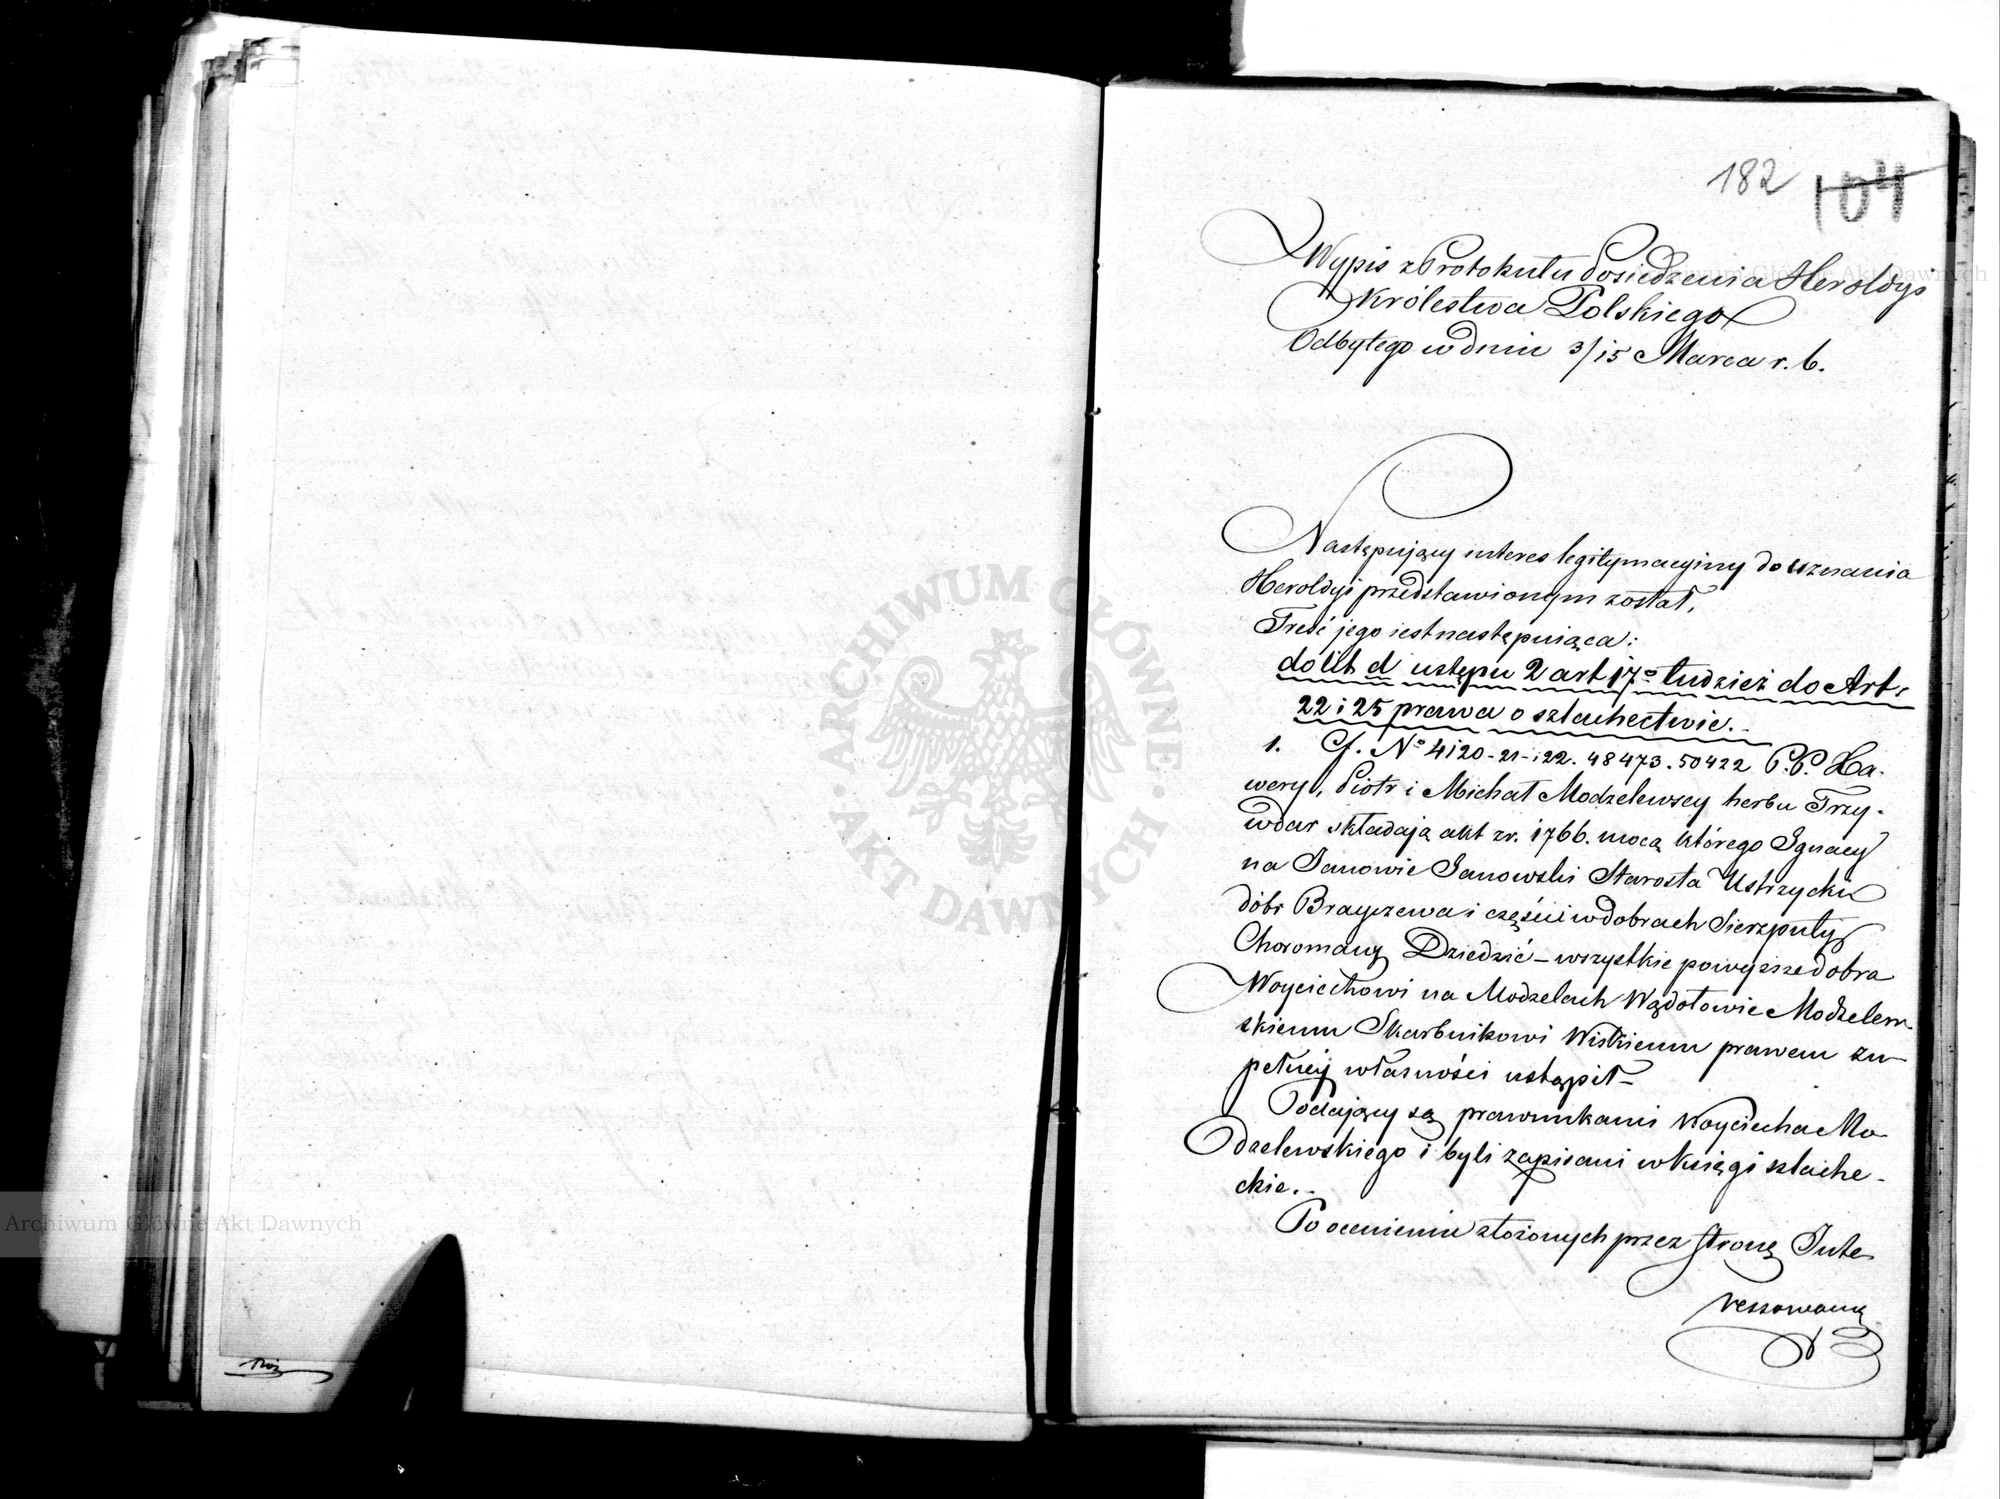 182 104
Wypis z Protokułu Posiedzenia Heroldyi
Królestwa Polskiego
Odbytego w dniu 3/15 Marca r. b.
Następujący interes legitymacyiny do uznania
Heroldyi przedstawionym został,
Treść jego iest następuiąca:
do lit d ustępu 2 art 17o tudzież do Art.
22 i 25 prawa o szlachectwie.
1. Cf. No 4120-21-i 22. 48473. 50422 P.P. Xa-
wery, Piotr i Michał Modzelewscy herbu Trzy-
wdar składają akt z r. 1766. mocą którego Ignacy
na Janowie Janowski Starosta Ustrzycki
dóbr Brayczewa i części w dobrach Sierzputy
Choromany Dziedzić – wszystkie powyższe dobra
Woyciechowi na Modzelach Wądołowie Modzelew-
skiemu Skarbnikowi Wiskiemu prawem zu-
pełnéy własności ustąpił –
Podający są prawnukami Woyciecha Mo-
dzelewskiego i byli zapisani w księgi szlache-
ckie.
Po ocenieniu złożonych przez stronę Inte-
ressowaną
ARCHIWUM GŁÓWNE AKT DAWNYCH
Archiwum Główne Akt Dawnych
Archiwum Główne Akt Dawnych